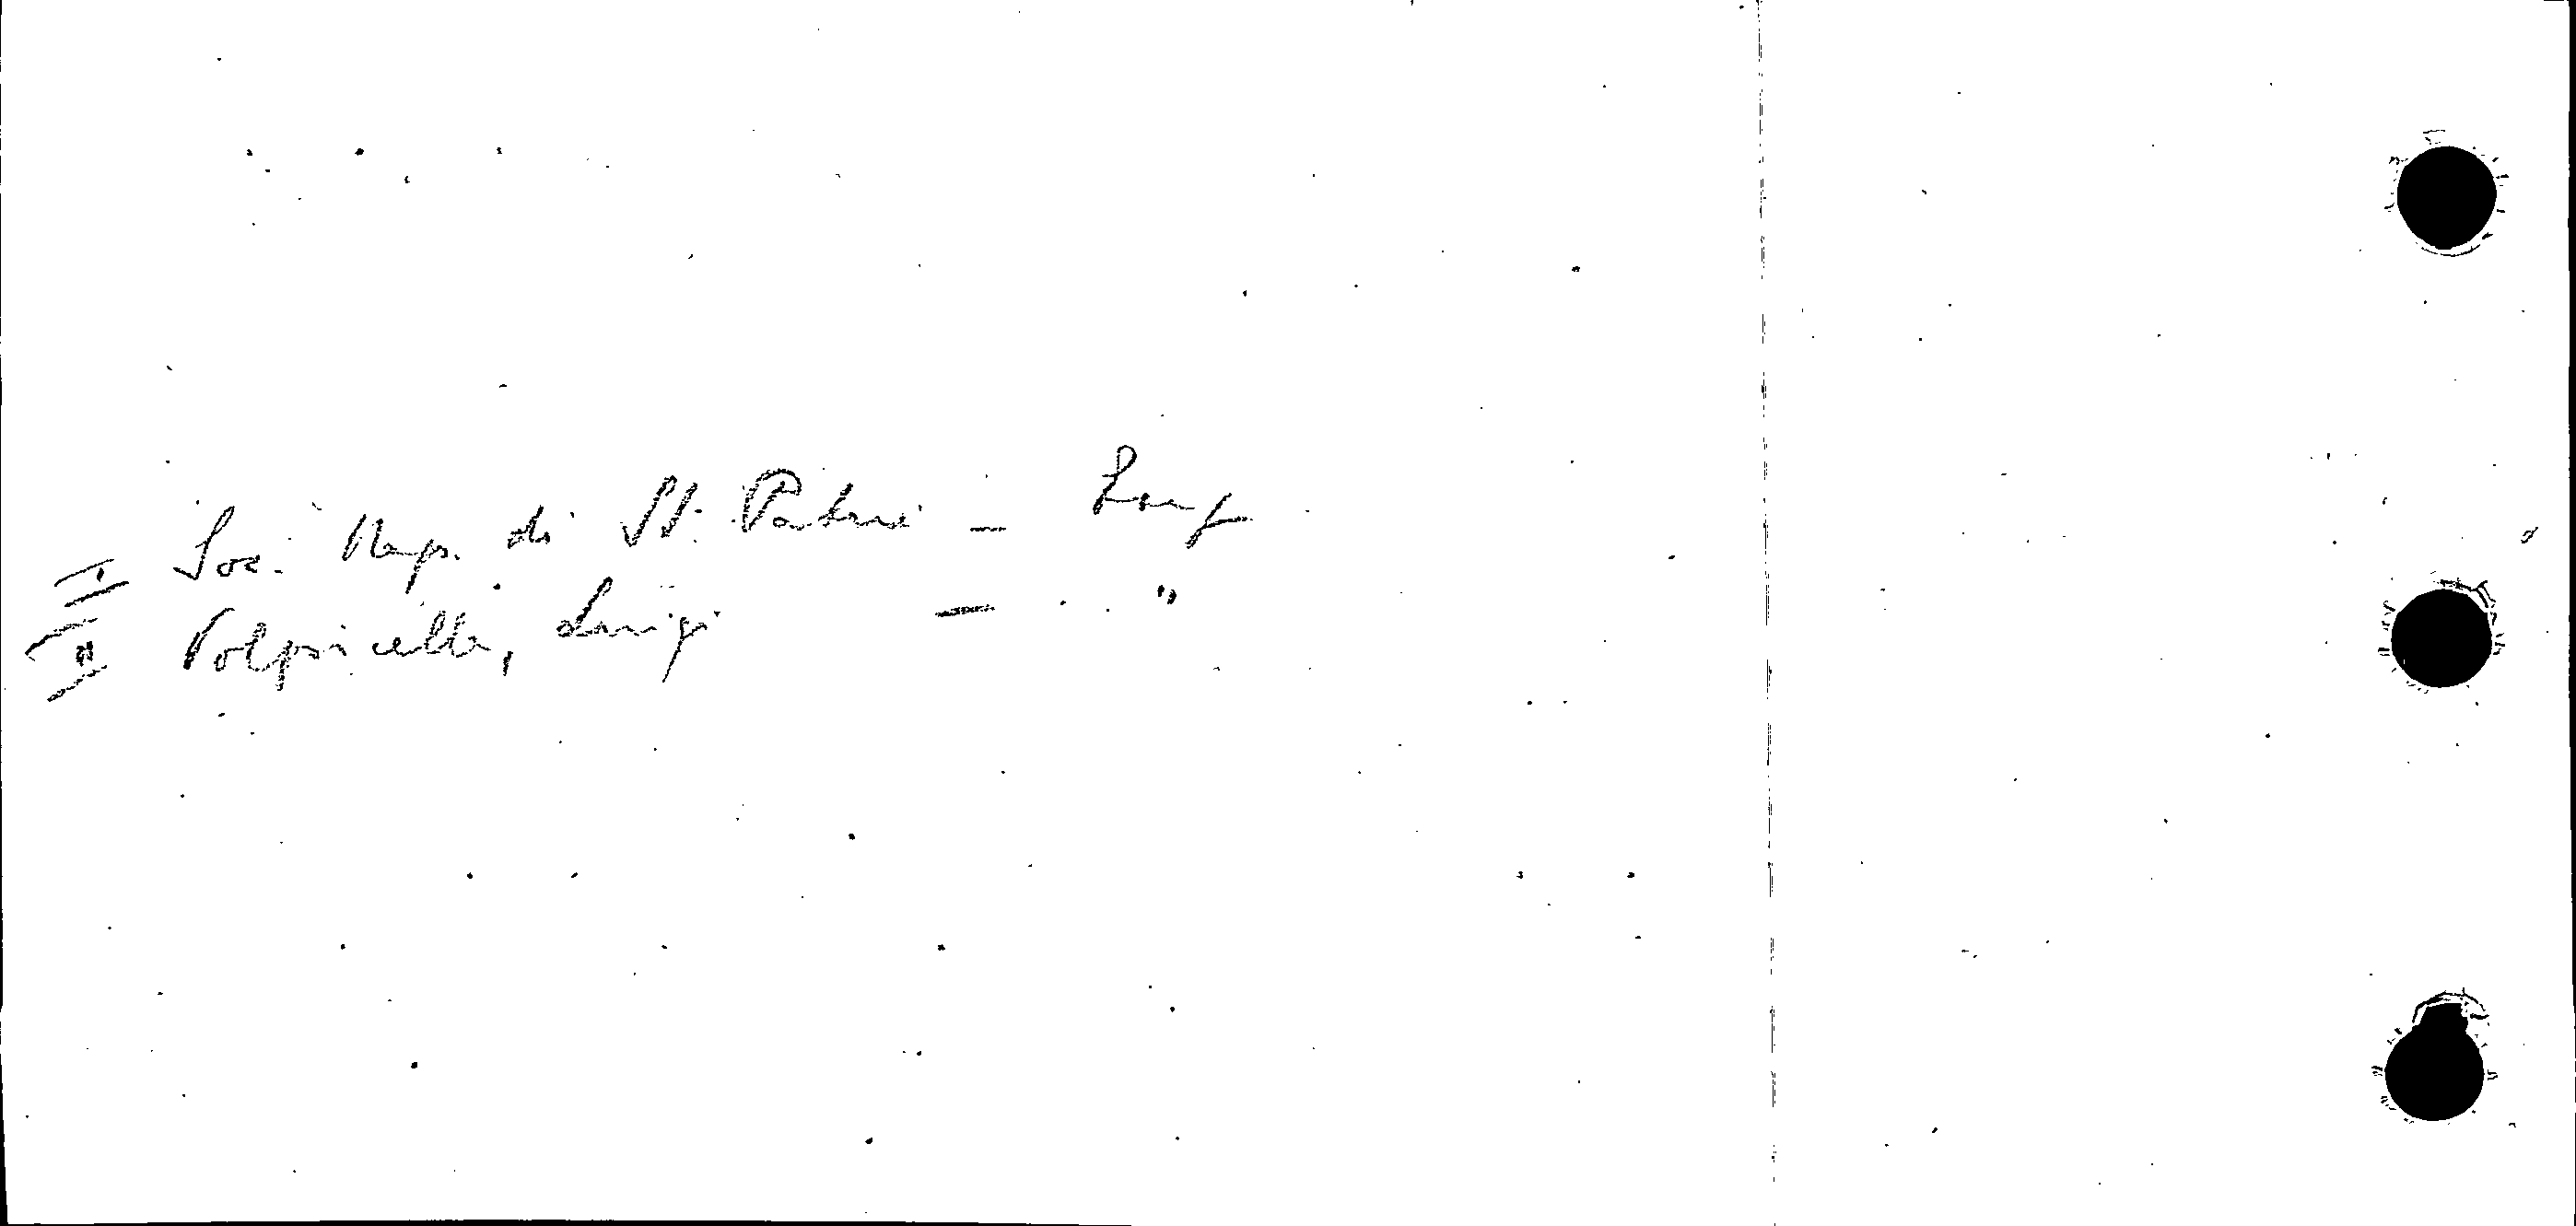 I Soc. Nap. di St. Patria –
II Volpicella, Luigi – "